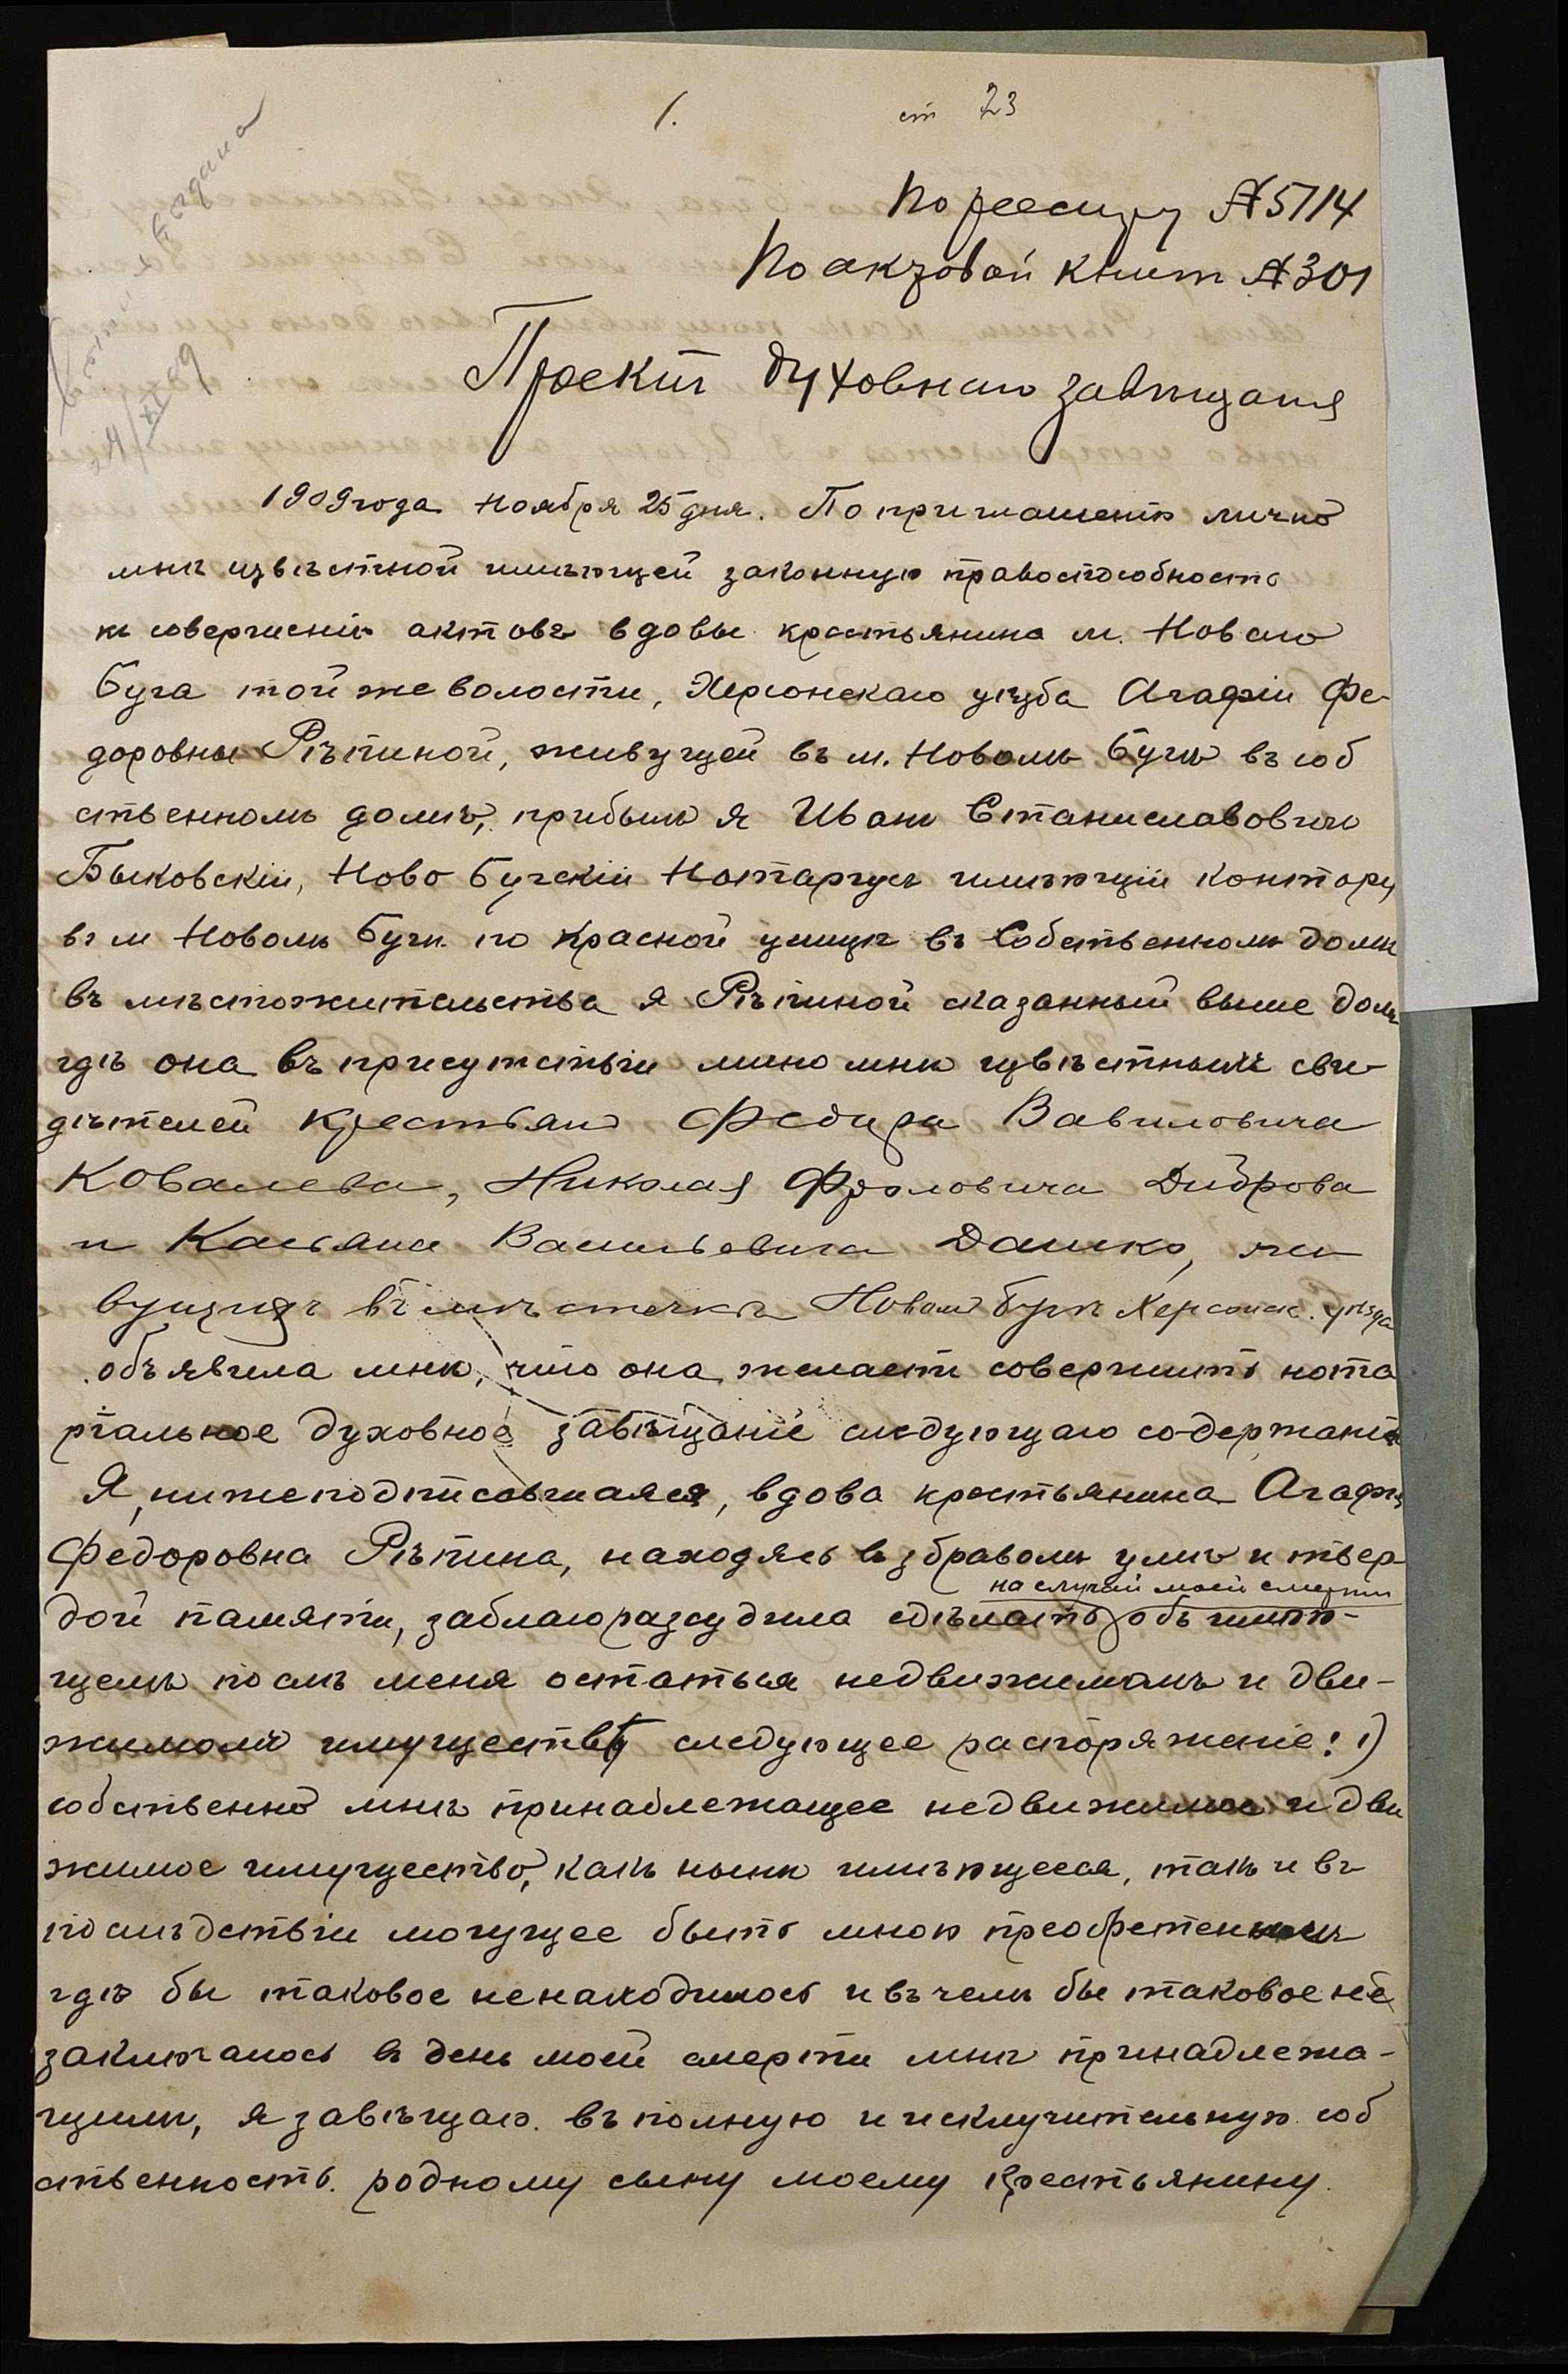 1. ст 23
По реестру № 5114
По актовой книге № 301
Проект духовнаго завѣщанія
1909 года Ноября 25 дня. По приглашенію лично
мнѣ извѣстной имѣющей законную правоспособность
къ совершенію актовъ вдовы крестьянина м. Новаго
Буга той же волости, Херсонскаго уѣзда Агафіи Фе-
доровны Рѣпиной, живущей въ м. Новомъ Бугѣ въ соб
ственномъ домѣ, прибылъ я Иванъ Станиславовичъ
Быковскій, Ново Бугскій Нотаріусъ имѣющій контору
въ м Новомъ Бугѣ по Красной улицѣ въ Собственномъ домѣ
въ мѣстожительства я Рѣпиной сказанный выше домъ
гдѣ она въ присутствіи лично мнѣ извѣстныхъ сви-
дѣтелей крестьянъ Федора Вавиловича
Ковалева, Николая Фроловича Диброва
и Касьяна Васильевича Дашко, жи
вущихъ въ мѣстечкѣ Новомъ Бугѣ Херсонск. уѣзда
объявила мнѣ, что она желаетъ совершить нота
ріальное духовное завѣщаніе слѣдующаго содержанія
Я, нижеподписавшаяся, вдова крестьянина Агафія
Федоровна Рѣпина, находясь въ здравомъ умѣ и твер
на случай моей смерти
дой памяти, заблагоразсудила сдѣлать объ имѣю-
щемъ послѣ меня остаться недвижимомъ и дви-
жимомъ имуществѣ следующее распоряженіе: 1)
собственно мнѣ принадлежащее недвижимое и дви
жимое имущество, какъ нынѣ имѣющееся, такъ и въ
послѣдствіи могущее быть мною преобретеннымъ
гдѣ бы таковое ненаходилось и въ чемъ бы таковое не
заключалось въ день моей смерти мнѣ принадлежа-
щимъ, я завѣщаю въ полную и исключительную соб
ственность родному сыну моему крестьянину